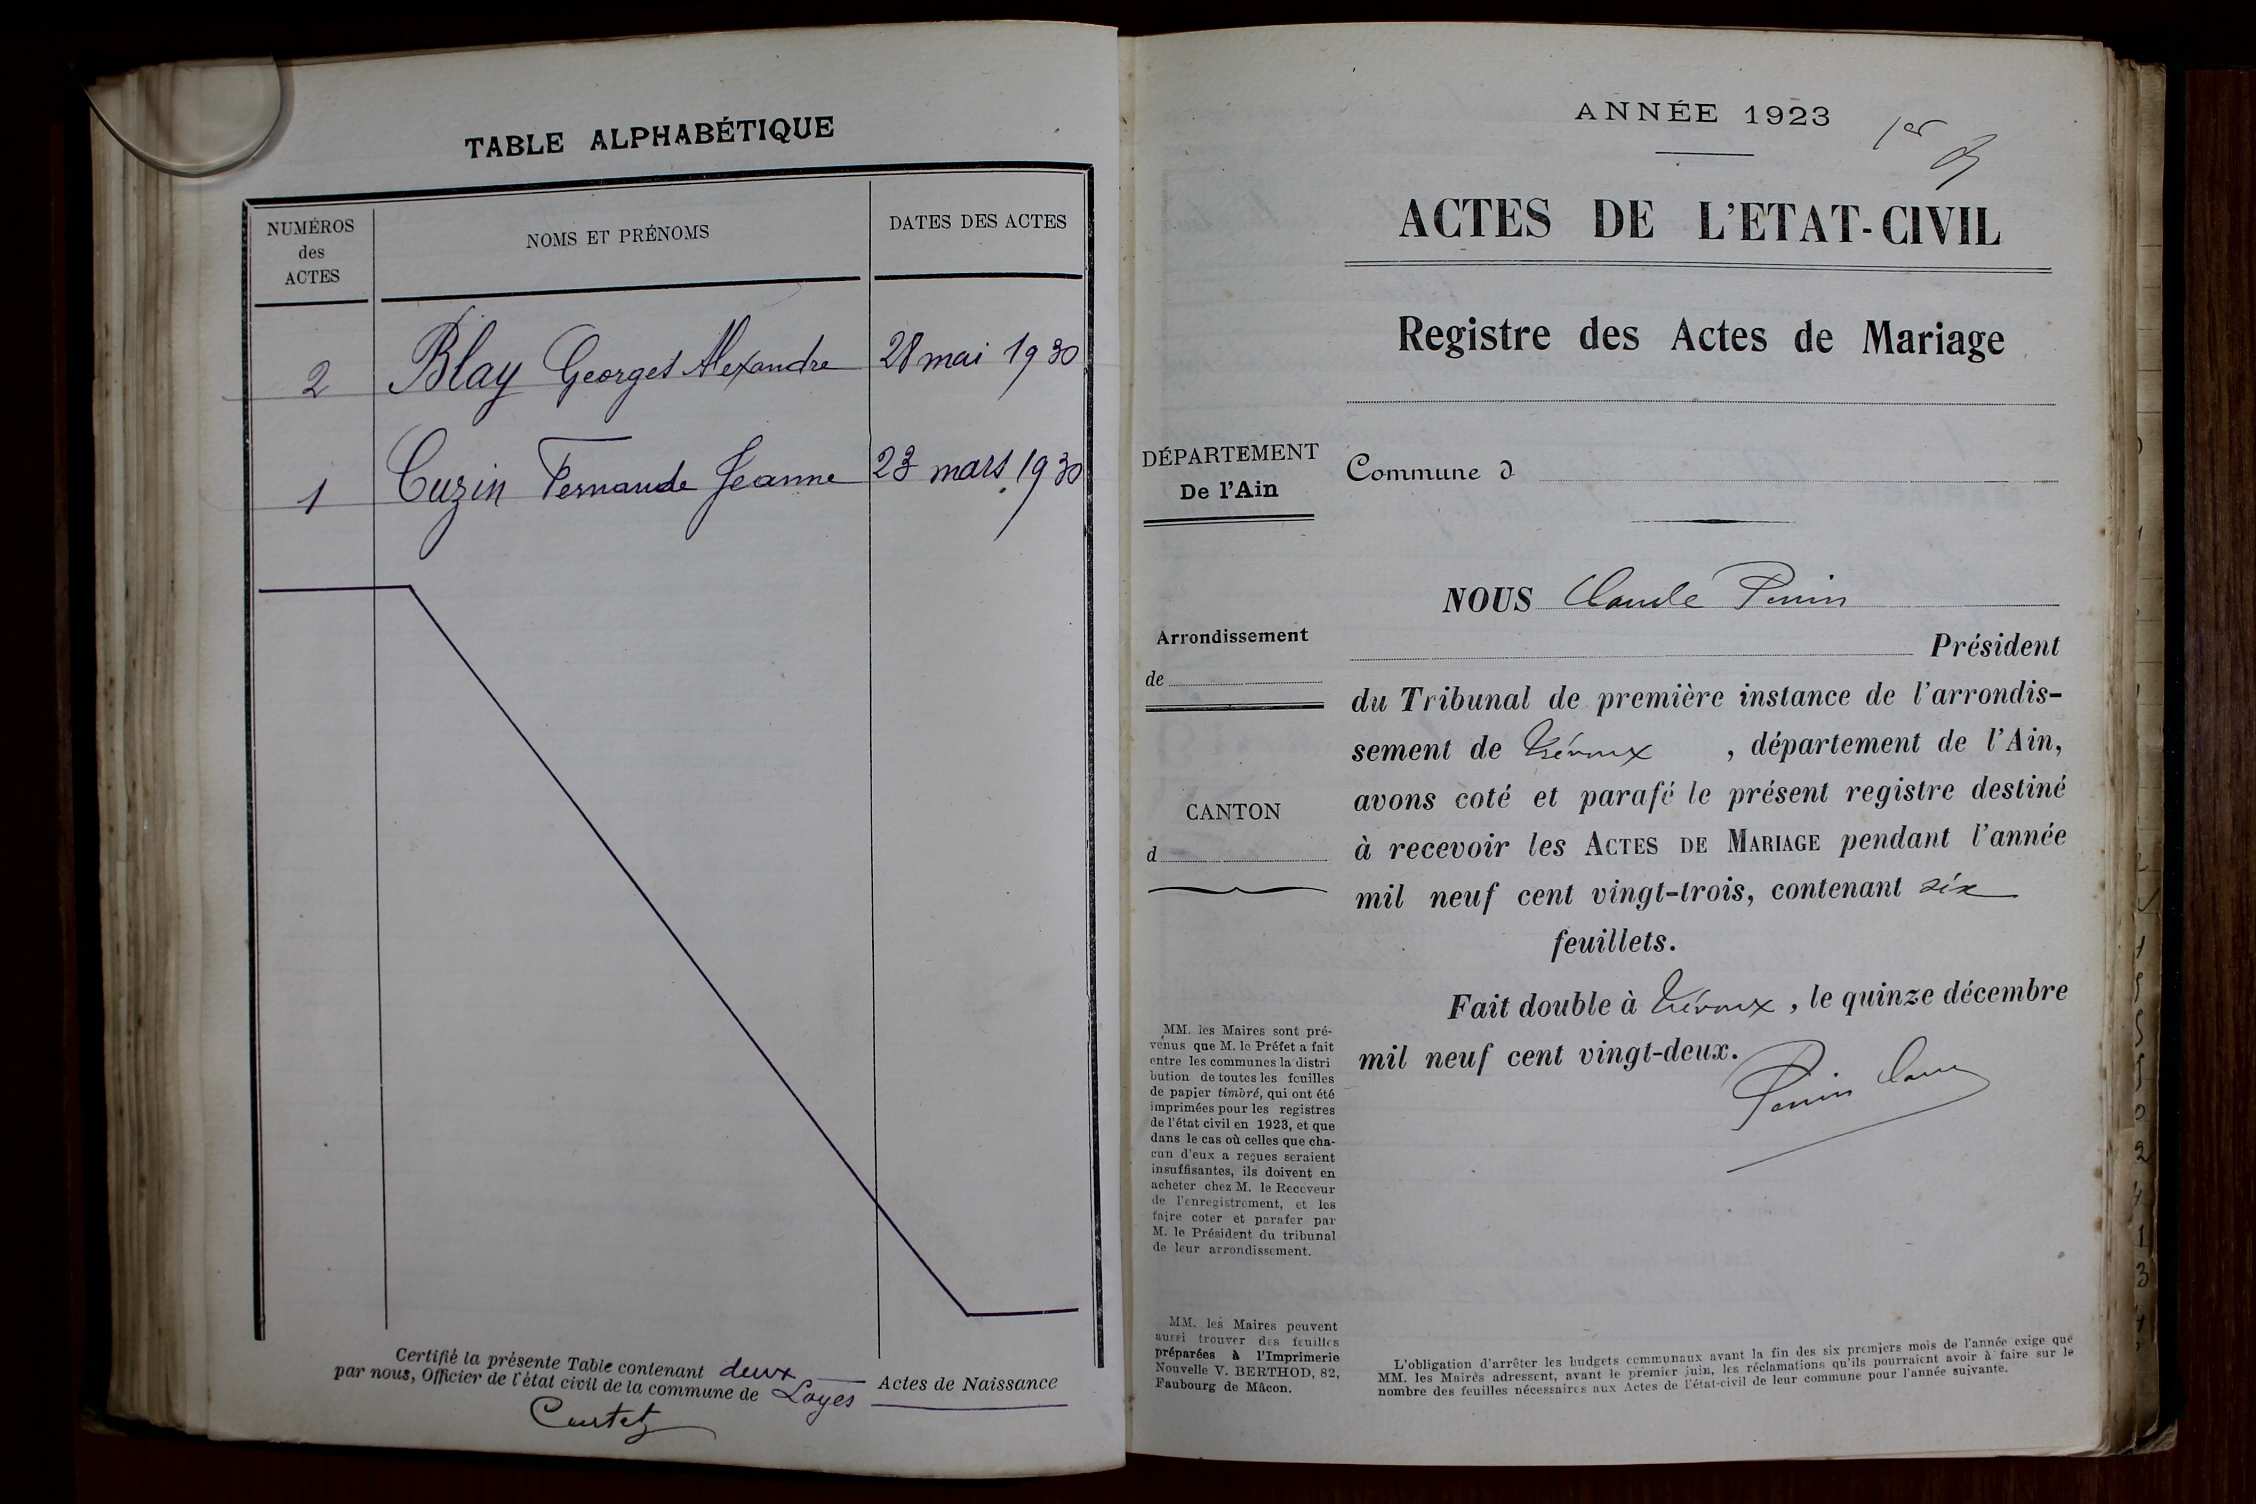 TABLE ALPHABÉTIQUE
NUMÉROS
des
ACTES
NOMS ET PRÉNOMS
DATES DES ACTES
2 Blay Georges Alexandre 28 mai 1930
1 Cuzin Fernande Jeanne 23 mars 1930
Certifié la présente Table contenant deux Actes de Naissance
par nous, Officier de l'état civil de la commune de Loyes
Curtet
ANNÉE 1923
1er
ACTES DE L'ETAT-CIVIL
Registre des Actes de Mariage
DÉPARTEMENT
De l'Ain
Arrondissement
de
CANTON
d
MM. les Maires sont pré-
venus que M. le Préfet a fait
entre les communes la distri
bution de toutes les feuilles
de papier timbré, qui ont été
imprimées pour les registres
de l'état civil en 1923, et que
dans le cas où celles que cha-
cun d'eux a reçues seraient
insuffisantes, ils doivent en
acheter chez M. le Receveur
de l'enregistrement, et les
faire coter et parafer par
M. le Président du tribunal
de leur arrondissement.
MM. les Maires peuvent
aussi trouver des feuilles
préparées à l'Imprimerie
Nouvelle V. BERTHOD, 82,
Faubourg de Mâcon.
Commune d
NOUS Claude Perrin
Président
du Tribunal de première instance de l'arrondis-
sement de Trévoux , département de l'Ain,
avons coté et parafé le présent registre destiné
à recevoir les ACTES DE MARIAGE pendant l'année
mil neuf cent vingt-trois, contenant six
feuillets.
Fait double à Trévoux , le quinze décembre
mil neuf cent vingt-deux.
Perrin Claude
L'obligation d'arrêter les budgets communaux avant la fin des six premiers mois de l'année exige que
MM. les Maires adressent, avant le premier juin, les réclamations qu'ils pourraient avoir à faire sur le
nombre des feuilles nécessaires aux Actes de l'état-civil de leur commune pour l'année suivante.